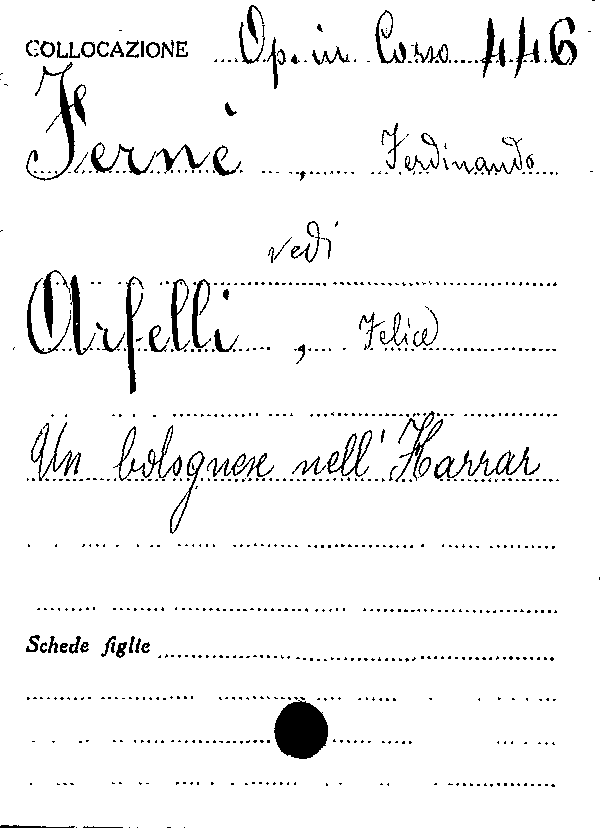 COLLOCAZIONE Op. in Corso 446
Fernè, Ferdinando
vedi
Orfelli, Felice
Un bolognese nell'Harrar
Schede figlie